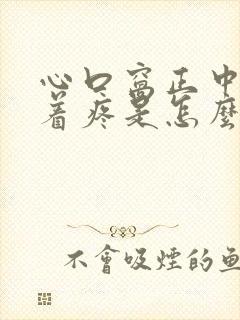 心口窩正中
着疼是怎麼
不會吸煙的魚